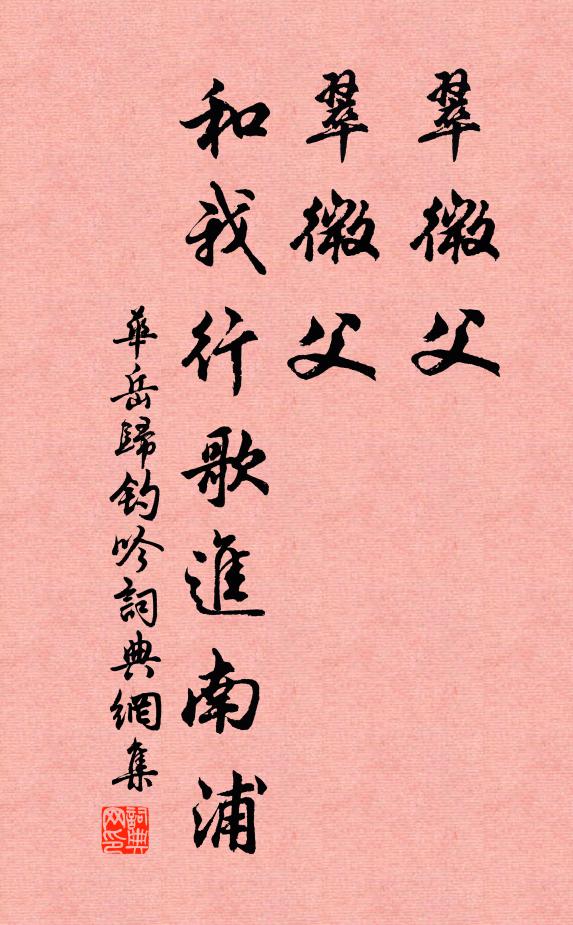 翠微父
翠微父
和我行歌進南浦
華岳歸釣吟詞典網集
詞典網印